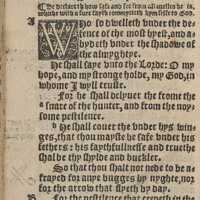 He declareth how safe and set from all
Who so dwelleth vnder the de
fence of the most hyest, and a-
bydeth vnder the shadowe of
the almyghtye.
He shall saye vnto the Lorde: O my
hope, and my stronge holde, my God, in
whome I wyll truste.
For he shall delyuer the frome the
snare of the hunter, and from the noy
some pestilence.
He shall couer the vnder hys win-
ges, that thou mayste be safe vnder his
fethers: his faythfullnesse and trueth
shal be thy shylde and buckler.
So that thou shalt not nede to be a-
frayed for anye bugges by nyghte, nor
for the arrow that flyeth by day.
B For the pestilence that crepeth in the